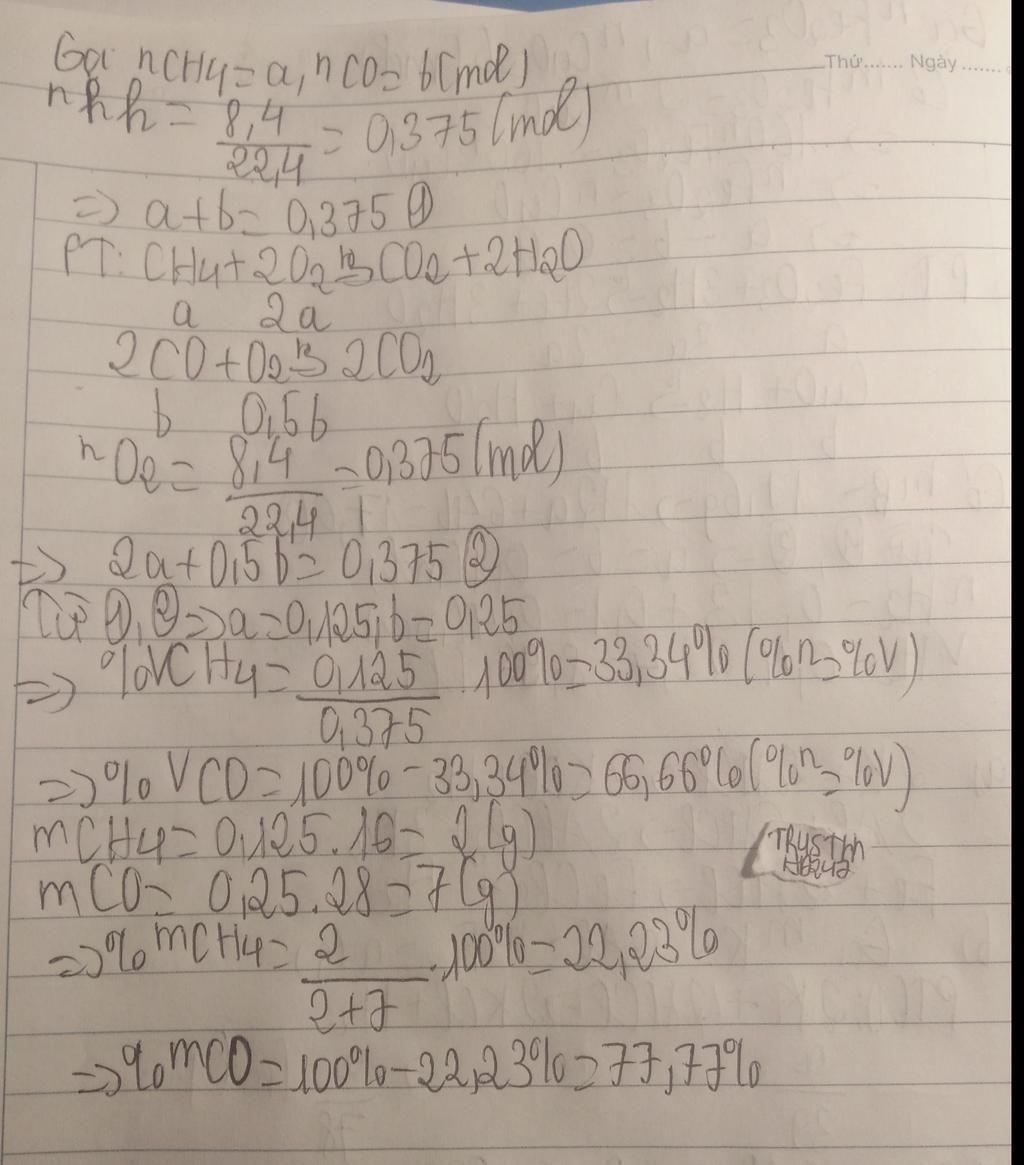 Thứ....... Ngày.......
Gọi nCH4 = a, nCO = b(mol)
nhh = 8,4/22,4 = 0,375 (mol)
=> a+b = 0,375 ①
PT: CH4 + 2O2 t°→ CO2 + 2H2O
a 2a
2CO + O2 t°→ 2CO2
b 0,5b
nO2 = 8,4/22,4 = 0,375 (mol)
=> 2a + 0,5b = 0,375 ②
Từ ①, ② => a = 0,125, b = 0,25
=> %VCH4 = 0,125/0,375 . 100% = 33,34% (%n = %V)
=> %VCO = 100% - 33,34% = 66,66% (%n = %V)
mCH4 = 0,125.16 = 2 (g)
mCO = 0,25.28 = 7 (g)
=> %mCH4 = 2/2+7 . 100% = 22,23%
=> %mCO = 100% - 22,23% = 77,77%